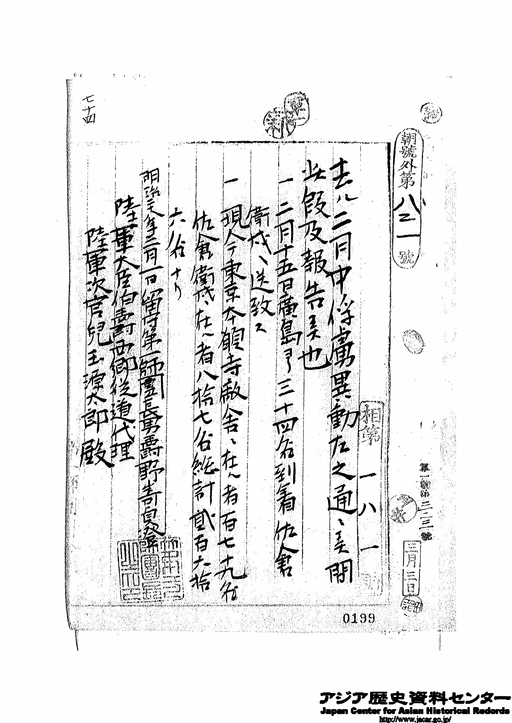 七十四
軍
朝號外第八三一號
相第一八一號
去ル二月中俘虜異動左之通ニ候間
此段及報告候也
一 二月十五日廣島ヨリ三十四名到着佐倉
衛戍ヘ送致ス
一 現今東京本願寺廠舎ニ在ル者百七十九名
佐倉衛戍ニ在ル者八拾七名総計貳百六拾
六名ナリ
明治廿八年三月一日留守第一師團長男爵野崎貞澄
陸軍大臣伯爵西郷従道代理
陸軍次官兒玉源太郎殿
軍一號第三三號
三月三日
0199
アジア歴史資料センター
Japan Center for Asian Historical Records
http://www.jacar.go.jp/